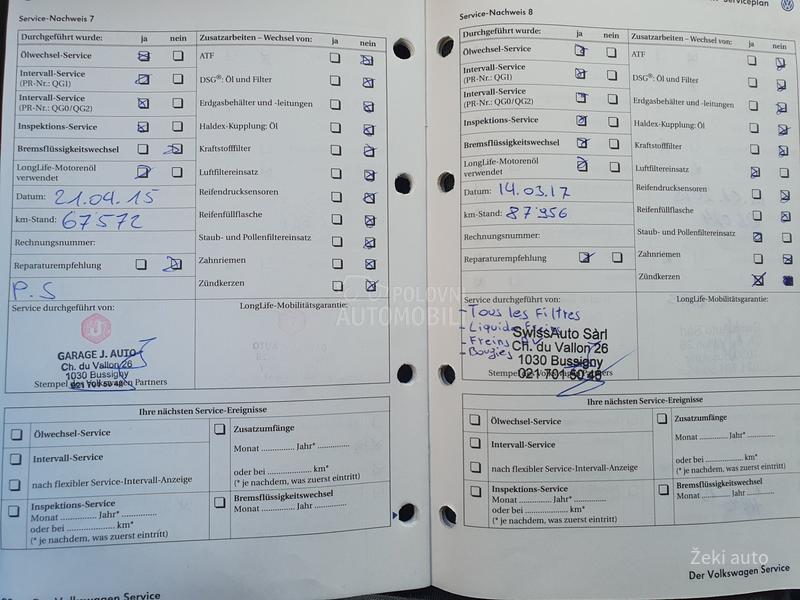 Service-Nachweis 7
Durchgeführt wurde: ja nein
Zusatzarbeiten – Wechsel von: ja nein
Ölwechsel-Service
ATF
Intervall-Service
(PR-Nr.: QG1)
DSG®: Öl und Filter
Intervall-Service
(PR-Nr.: QG0/QG2)
Erdgasbehälter und -leitungen
Inspektions-Service
Haldex-Kupplung: Öl
Bremsflüssigkeitswechsel
Kraftstofffilter
LongLife-Motorenöl
verwendet
Luftfiltereinsatz
Datum: 21.04.15
Reifendrucksensoren
km-Stand: 67572
Reifenfüllflasche
Rechnungsnummer:
Staub- und Pollenfiltereinsatz
Reparaturempfehlung
Zahnriemen
P.S
Zündkerzen
Service durchgeführt von:
LongLife-Mobilitätsgarantie:
GARAGE J. AUTO
Ch. du Vallon 26
1030 Bussigny
Stempel des Volkswagen Partners
Ihre nächsten Service-Ereignisse
Ölwechsel-Service
Zusatzumfänge
Monat ............ Jahr* ................
Intervall-Service
oder bei .................... km*
nach flexibler Service-Intervall-Anzeige
(* je nachdem, was zuerst eintritt)
Inspektions-Service
Bremsflüssigkeitswechsel
Monat ............ Jahr* ............
Monat ............ Jahr ................
oder bei .................... km*
(* je nachdem, was zuerst eintritt)
Der Volkswagen Service
Serviceplan
Service-Nachweis 8
Durchgeführt wurde: ja nein
Zusatzarbeiten – Wechsel von: ja nein
Ölwechsel-Service
ATF
Intervall-Service
(PR-Nr.: QG1)
DSG®: Öl und Filter
Intervall-Service
(PR-Nr.: QG0/QG2)
Erdgasbehälter und -leitungen
Inspektions-Service
Haldex-Kupplung: Öl
Bremsflüssigkeitswechsel
Kraftstofffilter
LongLife-Motorenöl
verwendet
Luftfiltereinsatz
Datum: 14.03.17
Reifendrucksensoren
km-Stand: 87'956
Reifenfüllflasche
Rechnungsnummer:
Staub- und Pollenfiltereinsatz
Reparaturempfehlung
Zahnriemen
Zündkerzen
Service durchgeführt von:
LongLife-Mobilitätsgarantie:
- Tous les Filtres
- Liquide Freins
- Freins AV
- Bougies
SwissAuto Sàrl
Ch. du Vallon 26
1030 Bussigny
021 701 50 48
Stempel des Volkswagen Partners
Ihre nächsten Service-Ereignisse
Ölwechsel-Service
Zusatzumfänge
Monat ............ Jahr* ................
Intervall-Service
oder bei .................... km*
nach flexibler Service-Intervall-Anzeige
(* je nachdem, was zuerst eintritt)
Inspektions-Service
Bremsflüssigkeitswechsel
Monat ............ Jahr* ............
Monat ............ Jahr ................
oder bei .................... km*
(* je nachdem, was zuerst eintritt)
Der Volkswagen Service
POLOVNI
AUTOMOBILI
Žeki auto